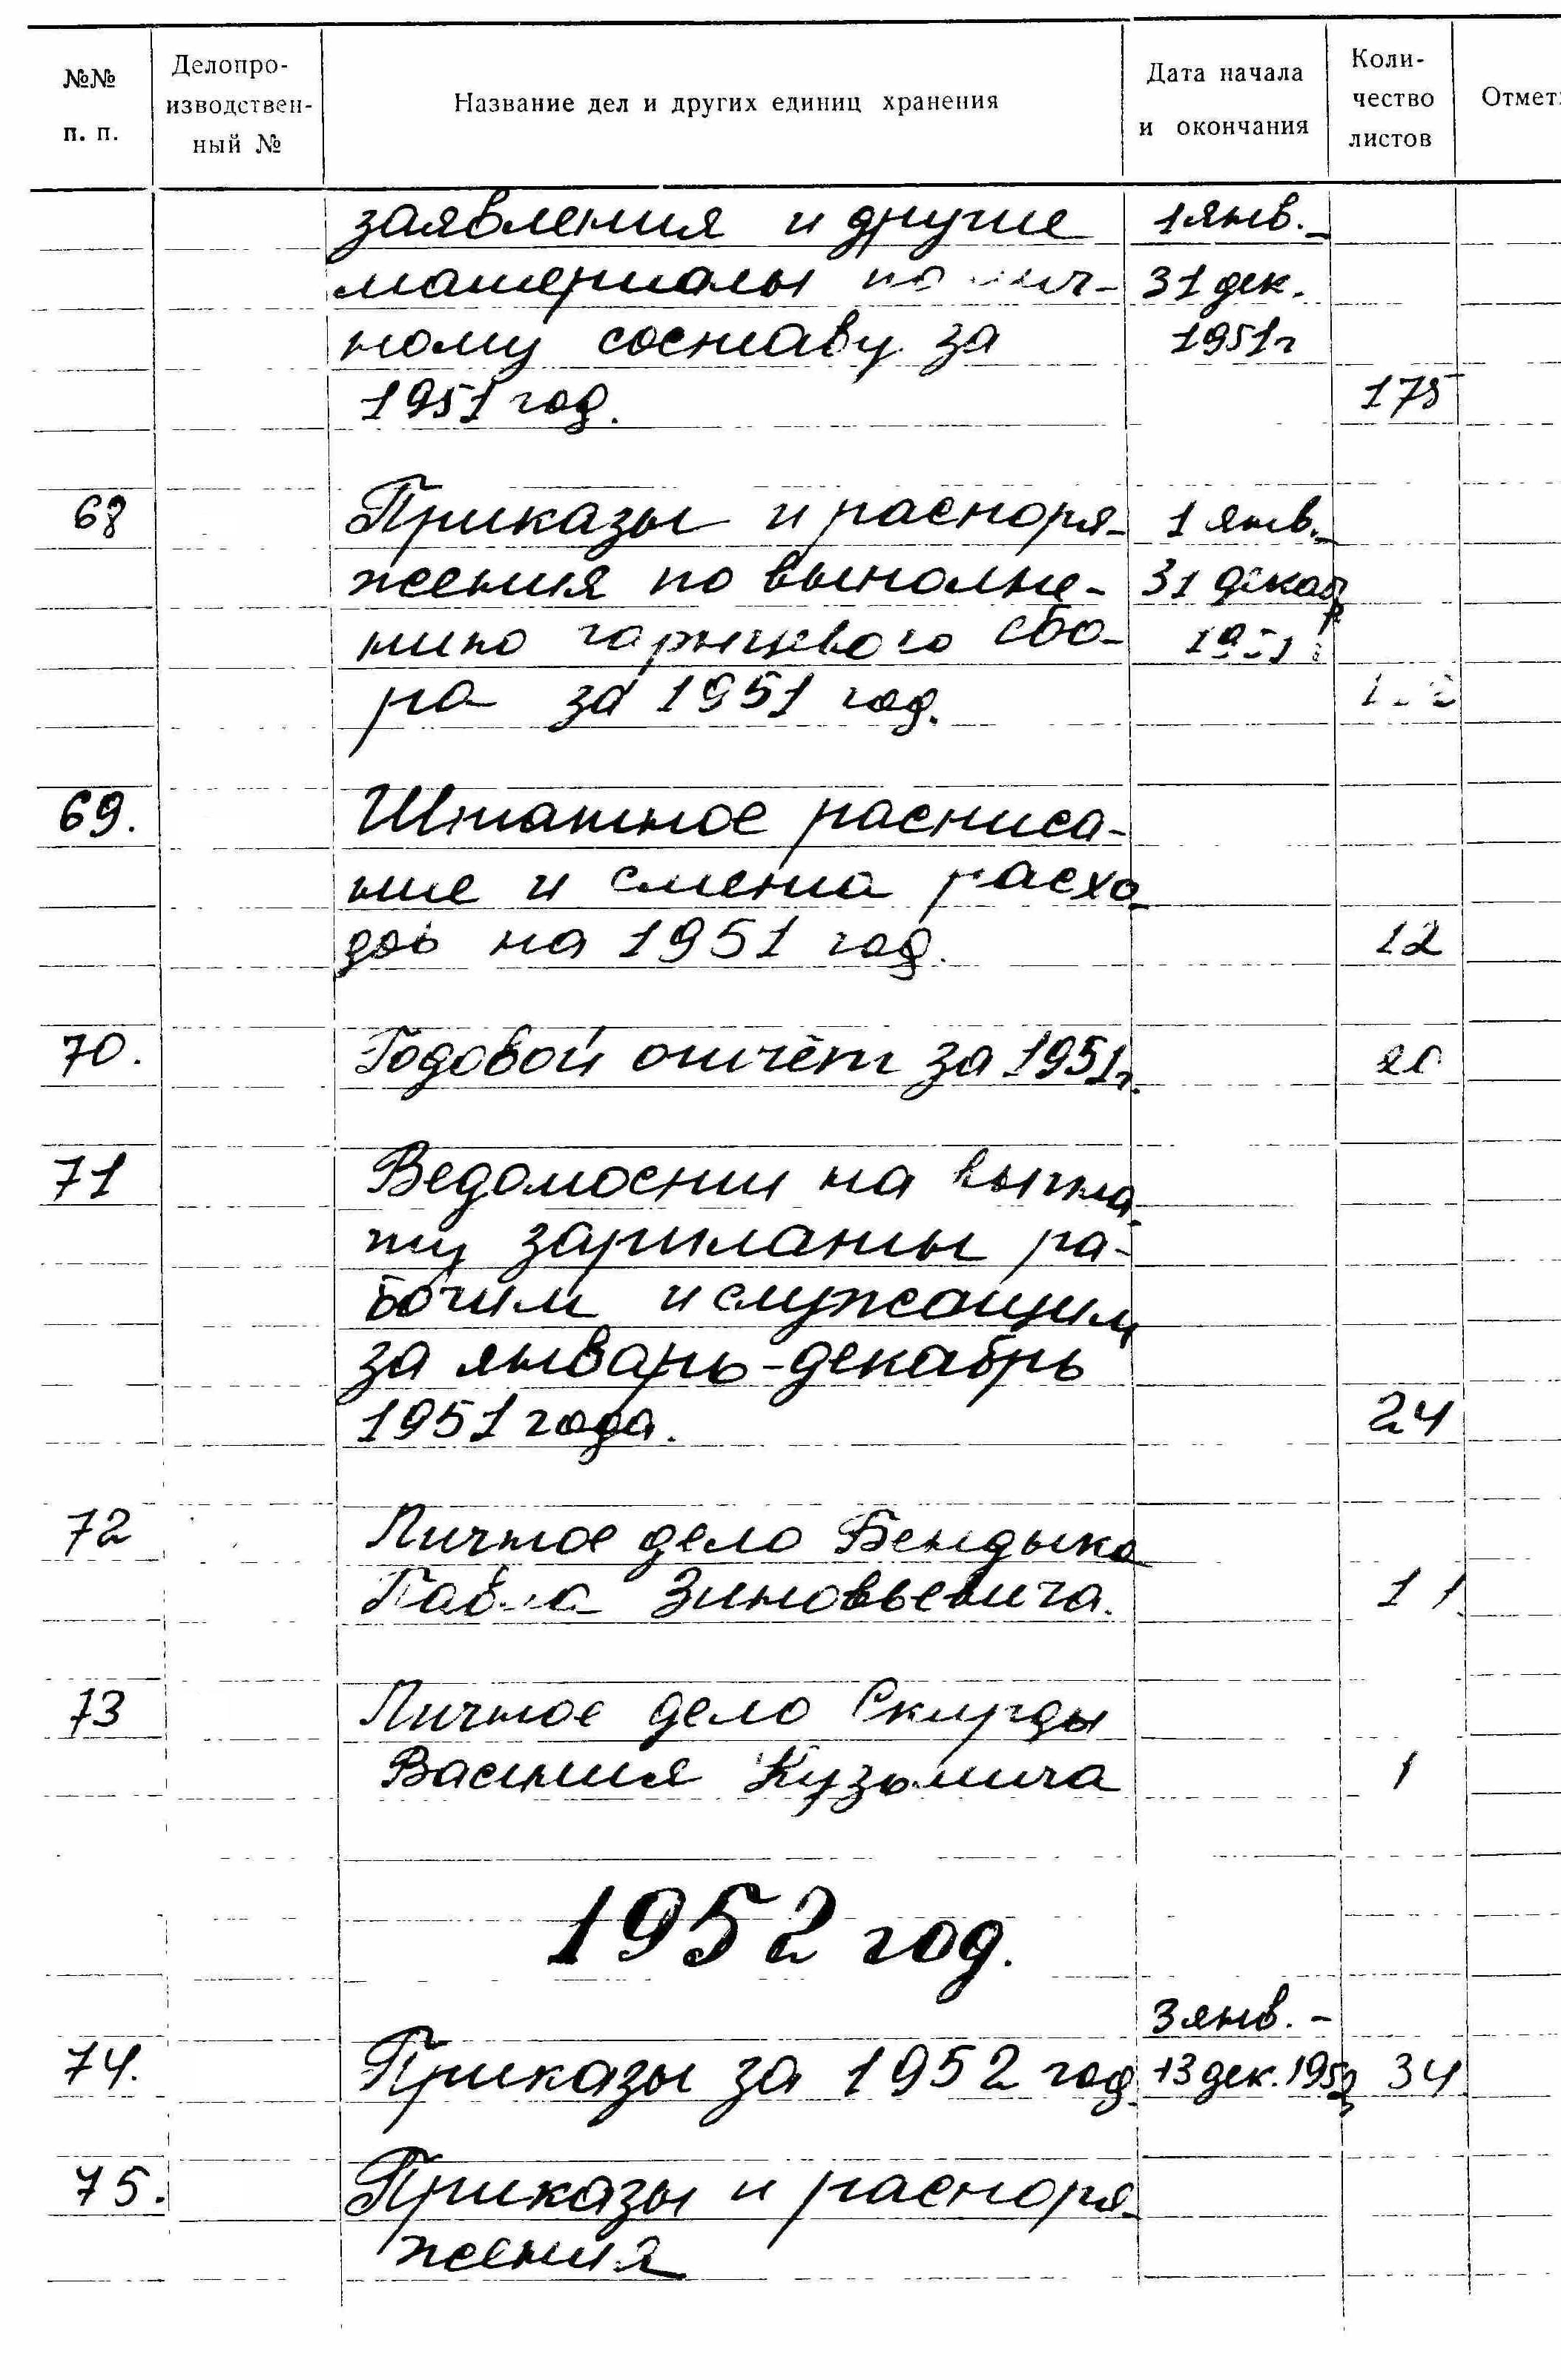 №№ п. п.
Делопро-
изводствен-
ный №
Название дел и других единиц хранения
Дата начала
и окончания
Коли-
чество
листов
Отмет
заявления и другие 1 янв. -
материалы по 31 дек.
ному составу за 1951г
1951 год. 175
68 Приказы и распоря- 1 янв. -
жения по выполне- 31 декабр
нию сбо-
ра за 1951 год.
69. Штатное расписа-
ние и смета расхо-
дов на 1951 год. 12
70. Годовой отчёт за 1951г. 20
71 Ведомости на выпла-
ту зарплаты ра-
бочим и служащим
за январь-декабрь
1951 года. 24
72 Личное дело Бендыка
Павла Зиновьевича. 11
73 Личное дело Скирды
Василия Кузьмича 1
1952 год.
3 янв. -
74. Приказы за 1952 год. 13 дек. 1952 34
75. Приказы и распоря-
жения